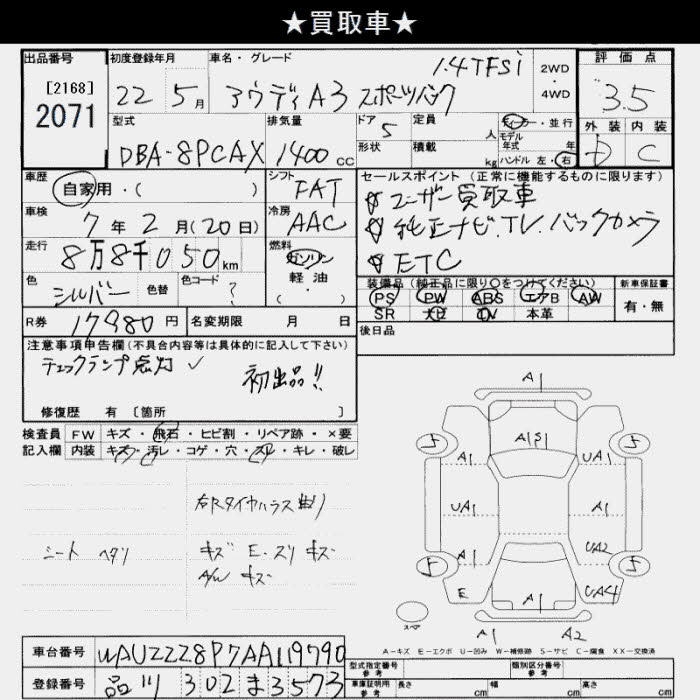 ★買取車★
出品番号 初度登録年月 車名・グレード 評価点
[2168] 2071
22 5月 アウディA3 スポーツバック 1.4TFSi 2WD・4WD 3.5
型式 排気量 ドア 定員 ディーラー・並行 外装 内装
DBA-8PCAX 1400cc 5 人 モデル年式 年 D C
形状 積載 kg ハンドル 左・右
車歴 シフト セールスポイント (正常に機能するものに限ります)
自家用・( ) FAT ユーザー買取車
車検 冷房 純正ナビ.TV.バックカメラ
7年2月(20日) AAC ETC
走行 燃料
8万8千050km ガソリン 軽油 ( ・ )
色 色替 色コード 装備品(純正品に限り○をつけてください) 新車保証書
シルバー ? PS PW ABS エアB AW 有・無
SR ナビ TV 本革
R券 17980円 名変期限 月 日 後日品
注意事項申告欄(不具合内容等は具体的に記入して下さい)
チェックランプ点灯 初出品!!
修復歴 有 〔箇所 〕
検査員 FW キズ・飛石・ヒビ割・リペア跡・×要
記入欄 内装 キズ・汚レ・コゲ・穴・スレ・キレ・破レ
右Rタイヤハウス曲り
シート ヘタリ キズ E.スリキズ
A/W キズ
A1
5 A1 5
A1 UA1
UA1 A1
A1 UA2
5 5
E UA4
スペア
A1 A2
A－キズ E－エクボ U－凹み W－補修跡 S－サビ C－腐食 XX－交換済
車台番号 WAUZZZ8P7AA119790 型式指定番号 参考 類別区分番号 参考
登録番号 品川 302 ま 3573 車庫証明用 参考 長さ cm 幅 cm 高さ cm